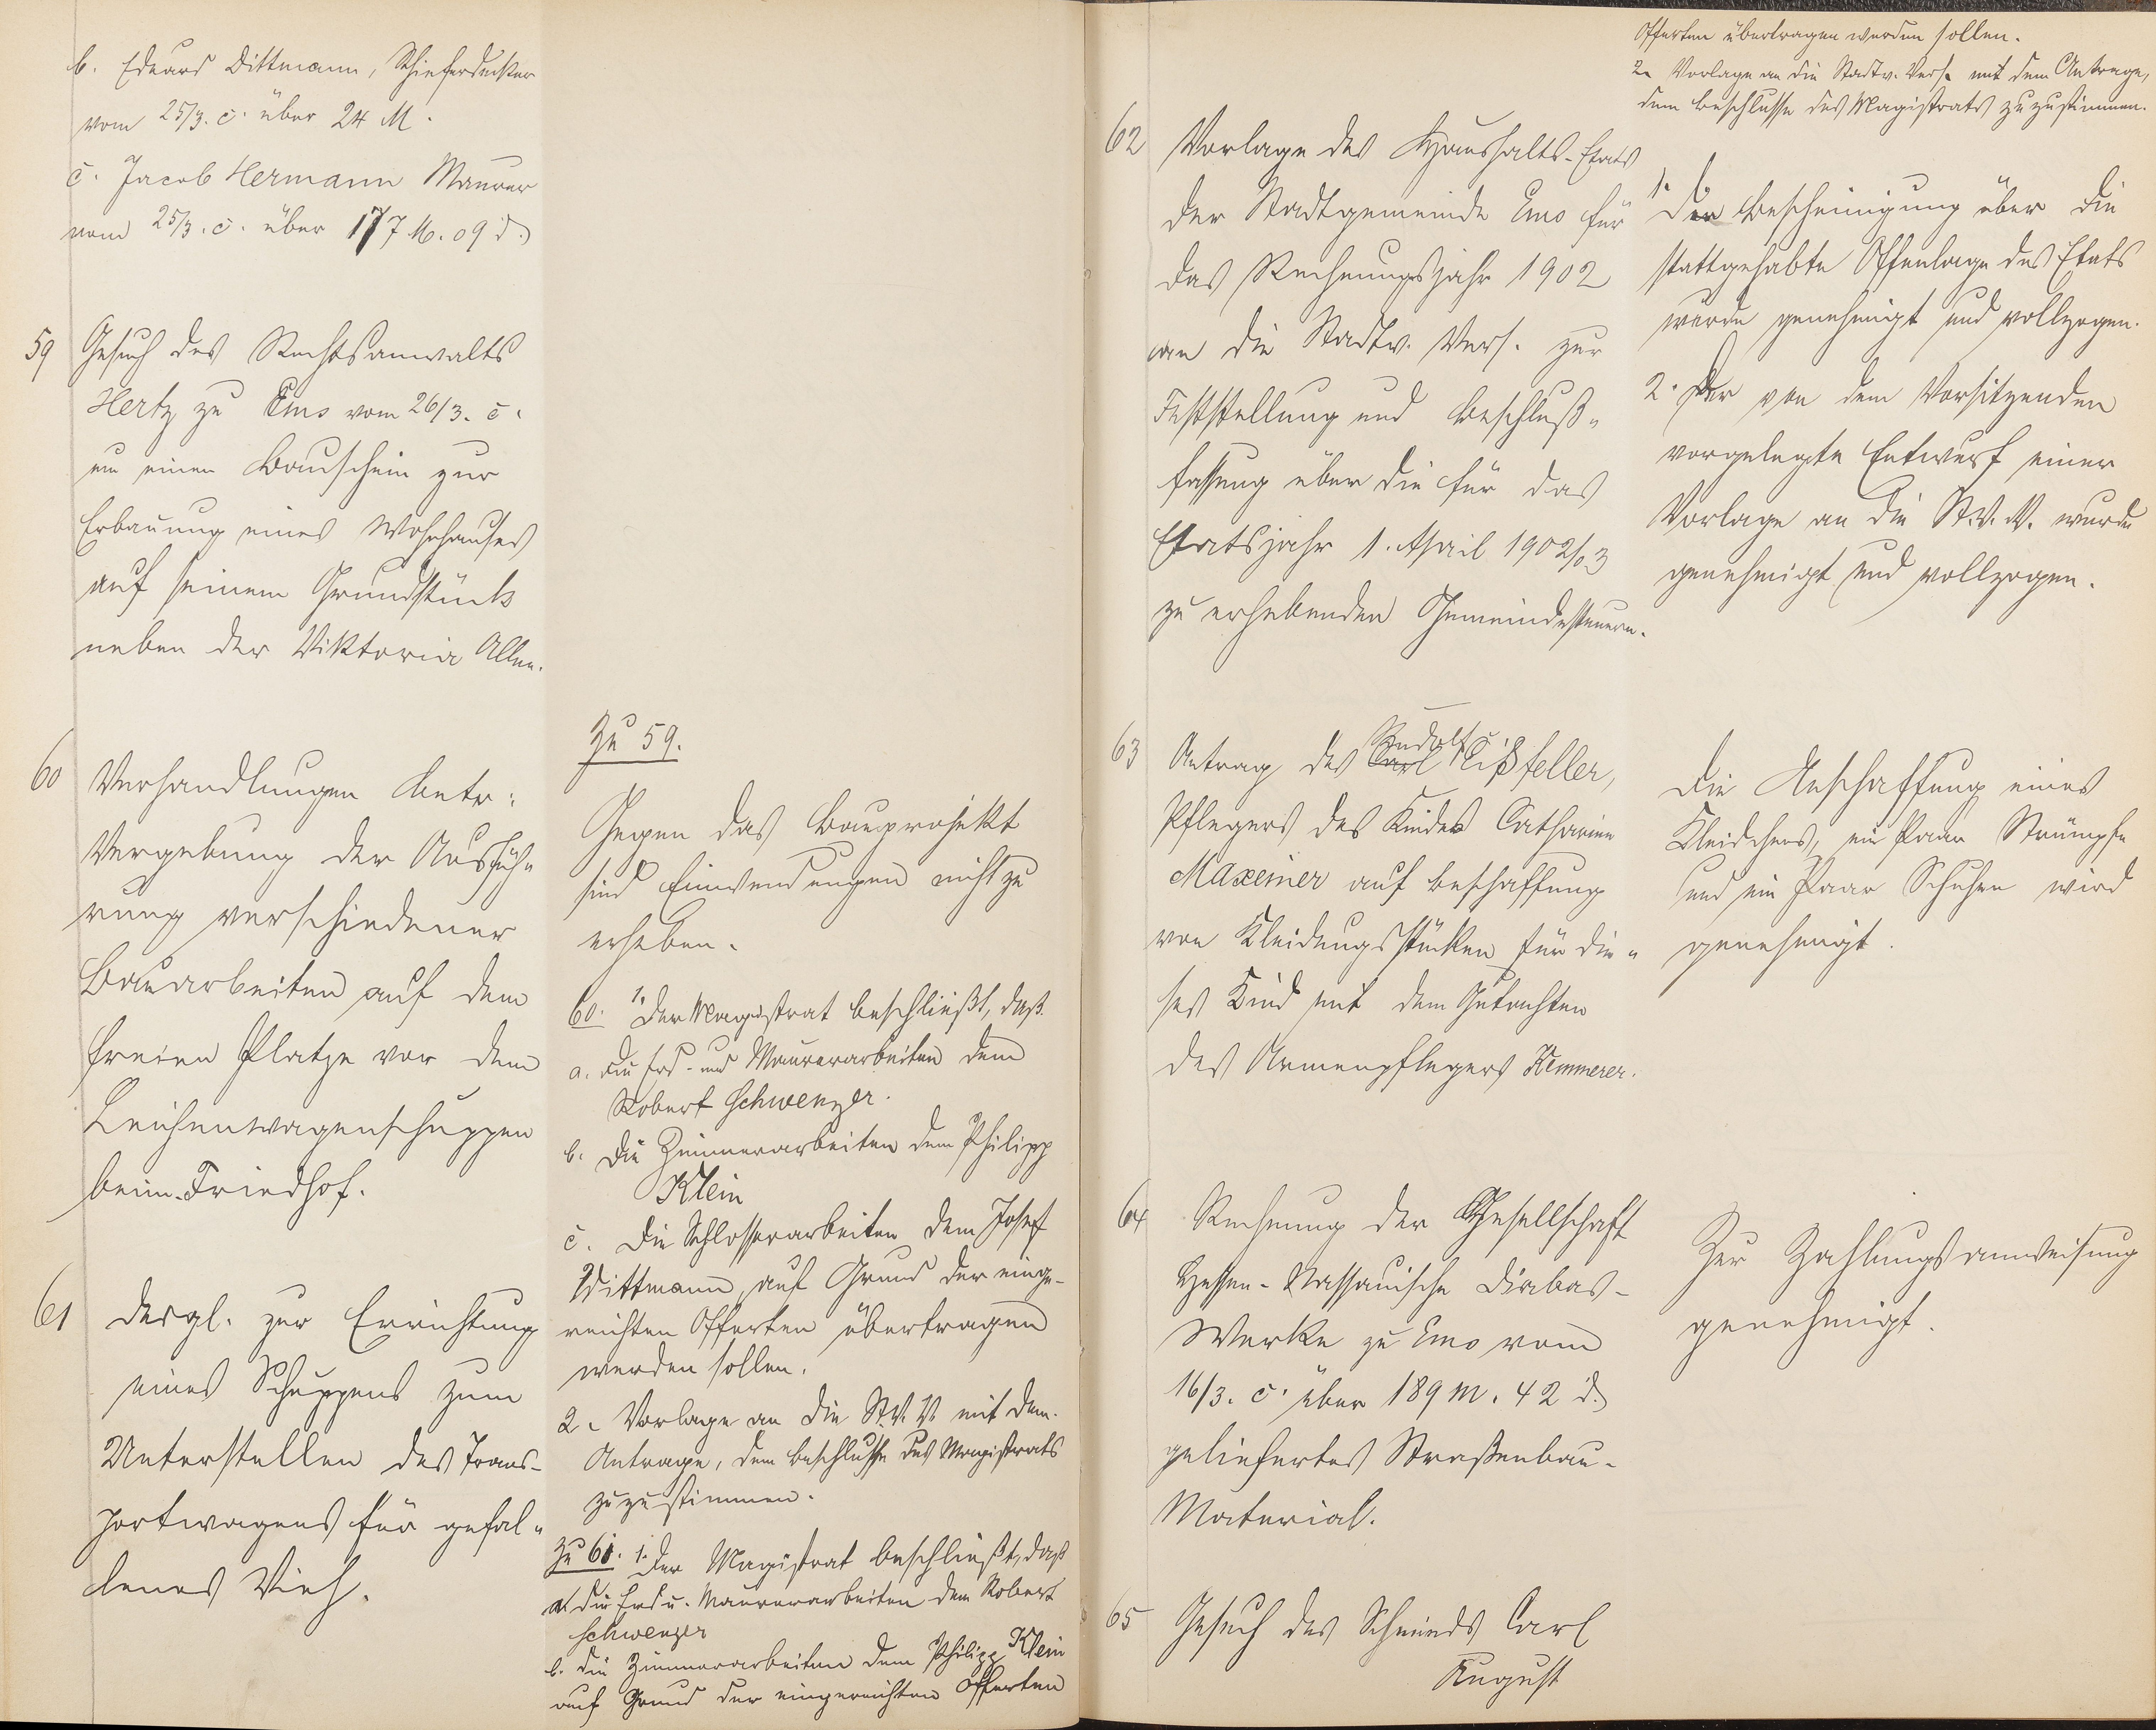 b. Eduard Dittmann, Schieferdecker
vom 25/3. c. über 24 M.
c. Jacob Hermann Maurer
vom 25/3. c. über 177 M. 09 d.
59 Gesuch des Rechtsanwalts
Hertz zu Ems vom 26/3. c.
um einen Bauschein zur
Erbauung eines Wohnhauses
auf seinem Grundstück
neben der Viktoria Allee.
60 Verhandlungen betr.
Vergebung der Ausfüh-
rung verschiedener
Bauarbeiten auf dem
freien Platze vor dem
Leichenwagenschuppen
beim Friedhof.
61 desgl. zur Errichtung
eines Schuppens zum
Unterstellen des Trans-
portwagens für gefal-
lenes Vieh.
Zu 59.
Gegen das Bauprojekt
sind Einwendungen nicht zu
erheben.
60. 1. Der Magistrat beschließt, daß
a. die Erd- und Maurerarbeiten dem
Robert Schwenzer.
b. Die Zimmerarbeiten dem Philipp
Klein
c. Die Schlosserarbeiten dem Josef
Wittmann, auf Grund der einge-
reichten Offerten übertragen
werden sollen.
2. Vorlage an die St. V. V. mit dem
Antrage, dem Beschlusse des Magistrats
zuzustimmen.
Zu 61. 1. Der Magistrat beschließt, daß
a. die Erd u. Maurerarbeiten dem Robert
Schwenzer
b. die Zimmerarbeiten dem Philipp Klein
auf Grund der eingereichten Offerten
Offerten übertragen werden sollen.
2. Vorlage an die Stadtv. Vers. mit dem Antrage,
dem Beschlusse des Magistrats zuzustimmen.
62 Vorlage des Haushalts-Etats
der Stadtgemeinde Ems für
das Rechnungsjahr 1902
an die Stadtv. Vers. zur
Feststellung und Beschluß-
fassung über die für das
Etatsjahr 1. April 1902/03
zu erhebenden Gemeindesteuern.
1. Der Bescheinigung über die
stattgehabte Offenlage des Etats
wurde genehmigt und vollzogen.
2. Der von dem Vorsitzenden
vorgelegte Entwurf einer
Vorlage an die St. V. V. wurde
genehmigt und vollzogen.
63 Antrag des Carl Rudolf Lißfeller,
Pflegers des Kindes Catharina
Maxeiner auf Beschaffung
von Kleidungsstücken für die-
ses Kind mit dem Gutachten
des Armenpflegers Kemmerer.
Die Anschaffung eines
Kleidchens, ein Paar Strümpfe
und ein Paar Schuhen wird
genehmigt.
64 Rechnung der Gesellschaft
Hessen-Nassauische Diabas-
Werke zu Ems vom
16/3. c. über 189 M. 42 d.
geliefertes Straßenbau-
Material.
Zur Zahlungsanweisung
genehmigt.
65 Gesuch des Schmieds Carl
August